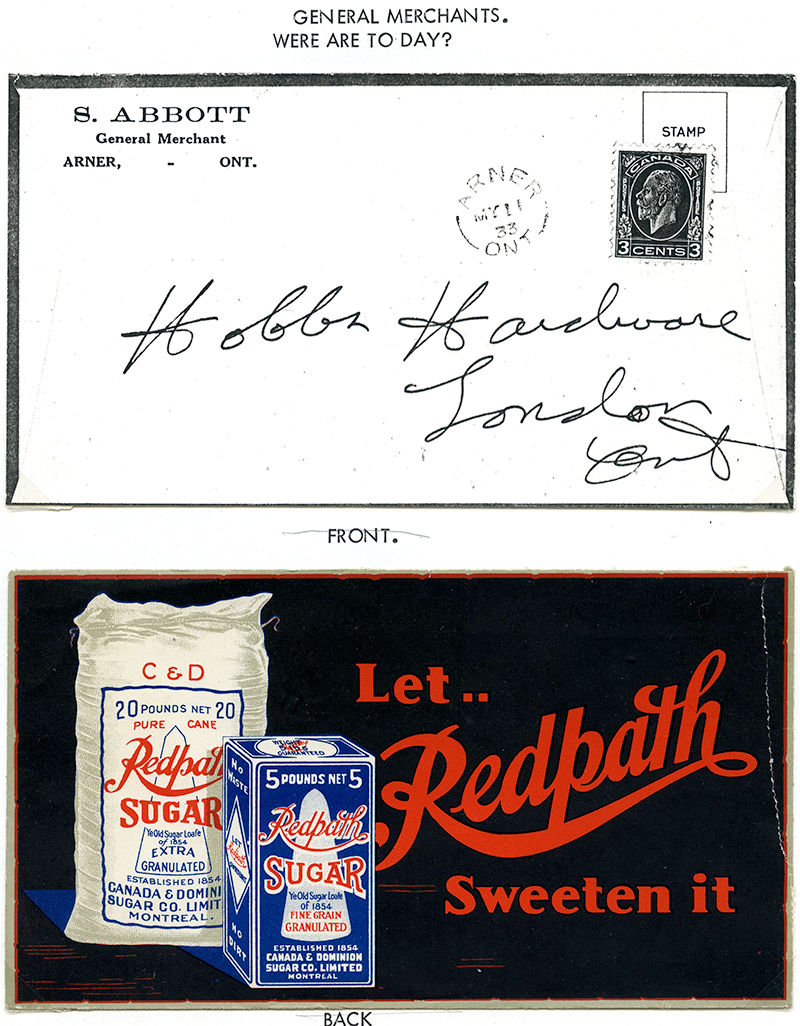 GENERAL MERCHANTS.
WERE ARE TO DAY?
S. ABBOTT
General Merchant
ARNER, - ONT.
STAMP
CANADA
POSTES
POSTAGE
3 CENTS 3
ARNER
MY 21
33
ONT
Hobbs Hardware
London
Ont
FRONT.
C & D
20 POUNDS NET 20
PURE CANE
Redpath
SUGAR
Ye Old Sugar Loafe
of 1854
EXTRA
GRANULATED
ESTABLISHED 1854
CANADA & DOMINI
SUGAR CO. LIMIT
MONTREAL.
WEIGHT
GUARANTEED
NO WASTE
LET
Redpath
SWEETEN IT
NO DIRT
5 POUNDS NET 5
Redpath
SUGAR
Ye Old Sugar Loafe
of 1854
FINE GRAIN
GRANULATED
ESTABLISHED 1854
CANADA & DOMINION
SUGAR CO. LIMITED
MONTREAL
Let..
Redpath
Sweeten it
BACK